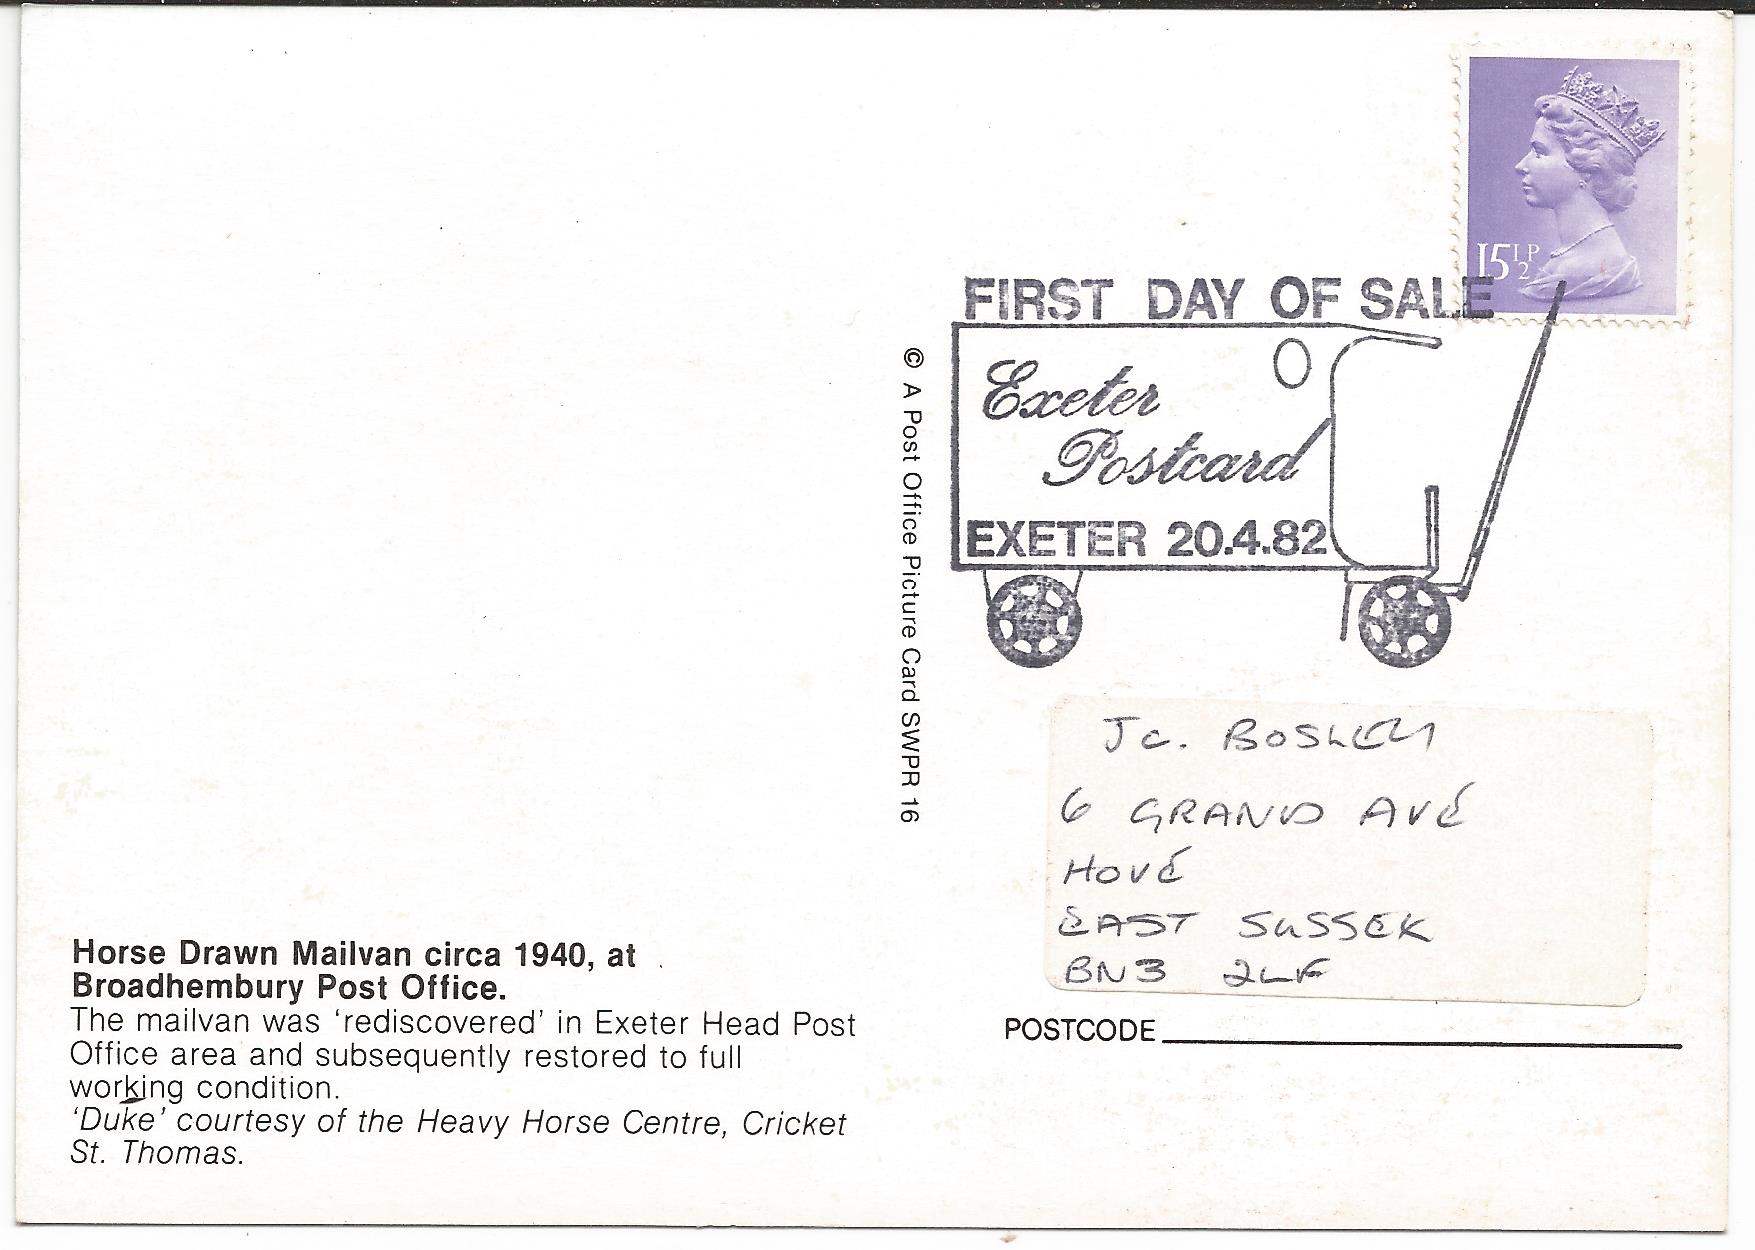 15½P
FIRST DAY OF SALE
Exeter
Postcard
EXETER 20.4.82
© A Post Office Picture Card SWPR 16
Jc. BOSLEY
6 GRAND AVE
HOVE
EAST SUSSEX
BN3 2LF
POSTCODE
Horse Drawn Mailvan circa 1940, at
Broadhembury Post Office.
The mailvan was ‘rediscovered’ in Exeter Head Post
Office area and subsequently restored to full
working condition.
‘Duke’ courtesy of the Heavy Horse Centre, Cricket
St. Thomas.